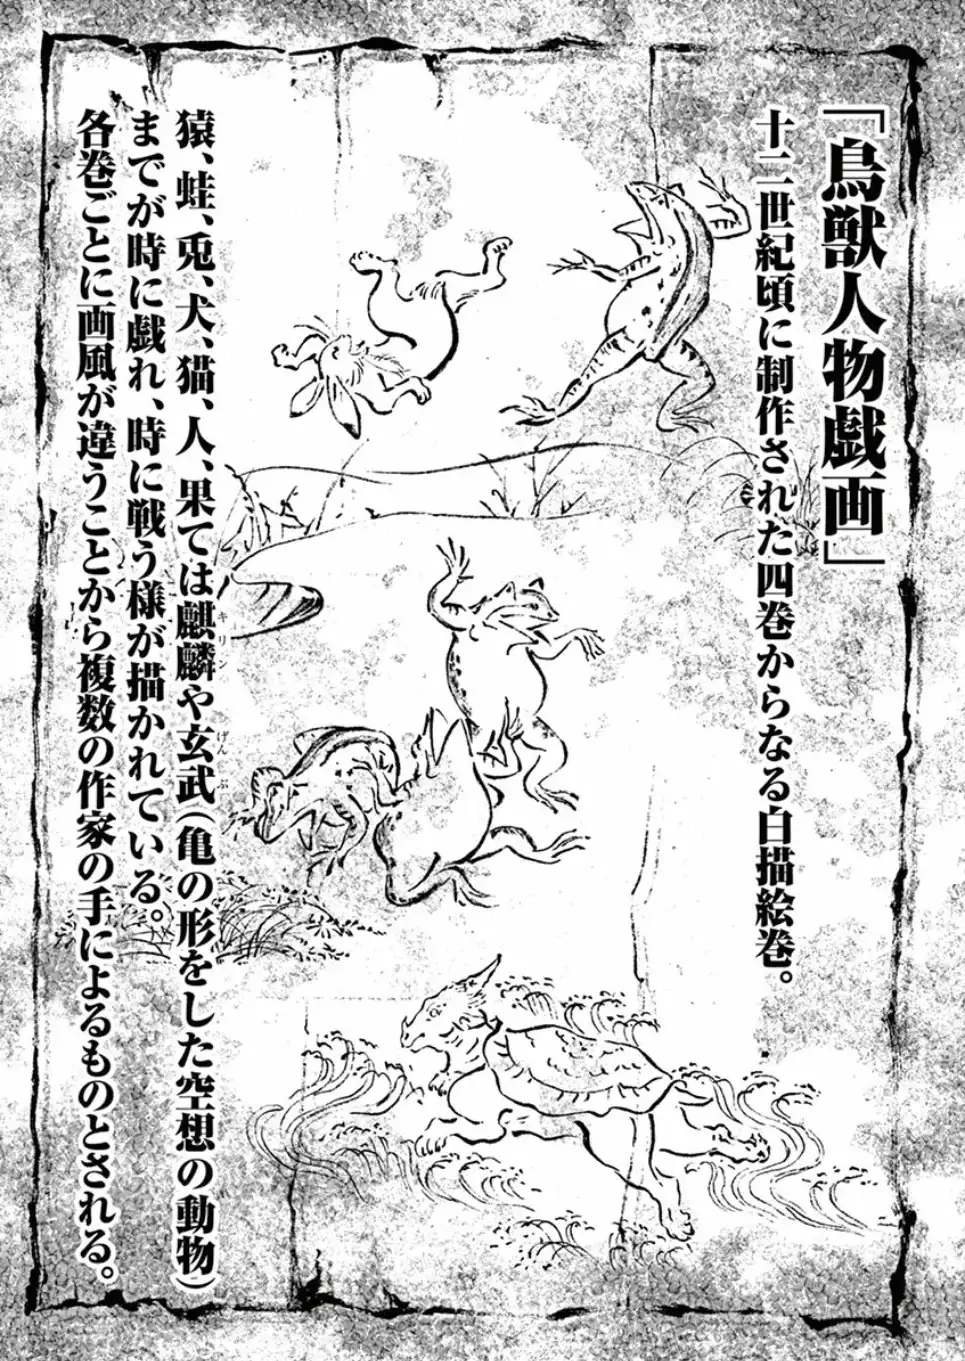 「鳥獣人物戯画」
十二世紀頃に制作された四巻からなる白描絵巻。
猿、蛙、兎、犬、猫、人、果ては麒麟や玄武(亀の形をした空想の動物)
キリン
げんぶ
までが時に戯れ、時に戦う様が描かれている。
各巻ごとに画風が違うことから複数の作家の手によるものとされる。